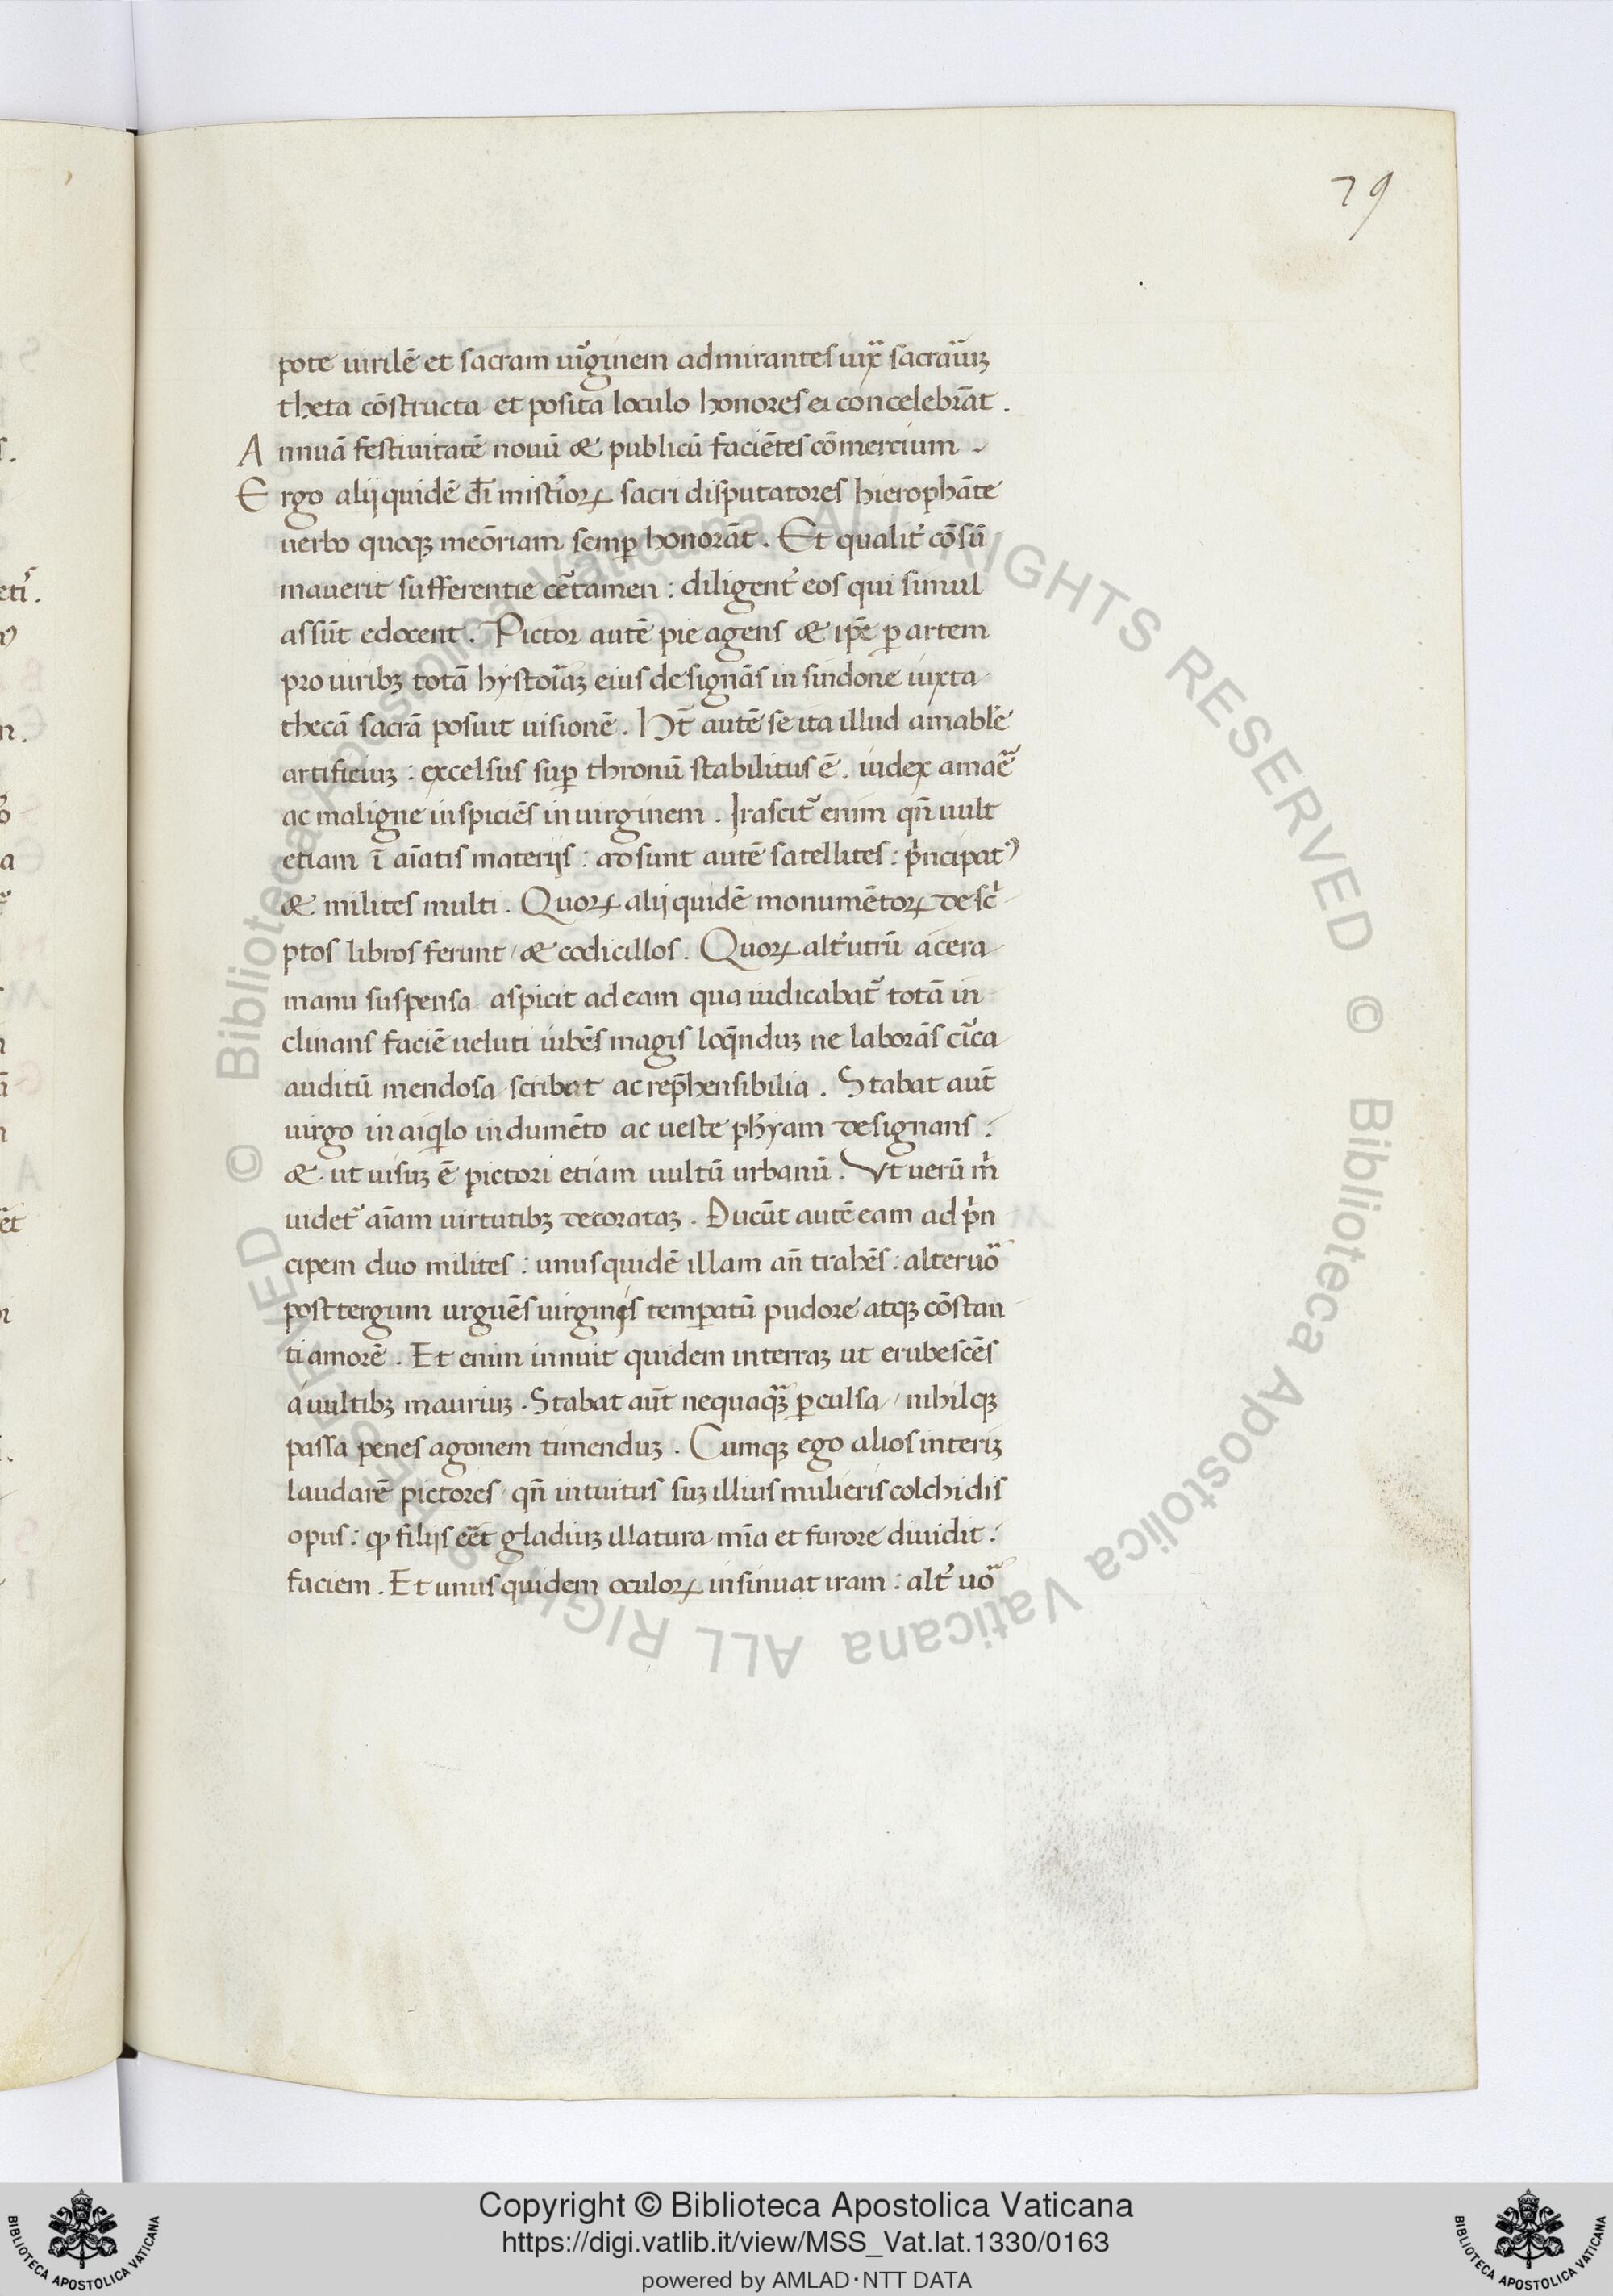 79
pote uirilē et sacram uirginem admirantes iuxͣ sacrariuꝫ
theta cōstructa et posita loculo honores ei concelebrāt .
Annuā festiuitatē nouū & publicū faciētes cōmercium .
Ergo alij quidē dī misterioꝝ sacri disputatores hierophāte
uerbo quoqꝫ meōriam semꝑ honorāt . Et qualit̉ cōsū
mauerit sufferentie certamen : diligent̉ eos qui simul
assūt edocent . Pictor autē pie agens & ip̄e ꝑ artem
pro uiribꝫ totā hystoriāꝫ eius designās in sindone iuxta
thecā sacrā posuit uisionē . Ht̄ autē se ita illud amabl̓e
artificiuꝫ : excelsus suꝑ thronū stabilitus ē . iudex amarē
ac maligne inspiciēs in uirginem . Irascit̉ enim qn̄ uult
etiam ī aīatis materijs : adsunt autē satellites : pͥncipatꝰ
& milites multi . Quoꝝ alij quidē monumētoꝝ descͥ
ptos libros ferunt / & codicillos . Quoꝝ alt̉utrū a cera
manu suspensa aspicit ad eam qua iudicabat̉ totā in
clinans faciē ueluti iubēs magis loq̄nduꝫ ne laborās circa
auditū mendosa scribat ac rep̄hensibilia . Stabat aut̄
uirgo in aiq̓lo indumēto ac ueste ph̓yam designans :
& ut uisuꝫ ē pictori etiam uultū urbanū . Vt uerū mͥ
uidet̉ aīam uirtutibꝫ decorataꝫ . Ducūt autē eam ad pͥn
cipem duo milites : unus quidē illam an̄ trahēs : alter uͦo
post tergum urguēs uirginis temꝑatū pudore atqꝫ cōstan
ti amorē . Et enim innuit quidem in terraꝫ ut erubescēs
a uultibꝫ mauriuꝫ . Stabat aut̄ nequaqᷓꝫ ꝑculsa / nihilqꝫ
passa penes agonem timenduꝫ . Cumqꝫ ego alios interiꝫ
laudarē pictores / qn̄ intuitus suꝫ illius mulieris colchidis
opus : ꝙ filijs eēt gladiuꝫ illatura mīa et furore diuidit :
faciem . Et unus quidem oculoꝝ insinuat iram : alt̉ uͦo
© Biblioteca Apostolica Vaticana ALL RIGHTS RESERVED © Biblioteca Apostolica Vaticana ALL RIGHTS RESERVED
Copyright © Biblioteca Apostolica Vaticana
https://digi.vatlib.it/view/MSS_Vat.lat.1330/0163
powered by AMLAD·NTT DATA
BIBLIOTECA APOSTOLICA VATICANA
BIBLIOTECA APOSTOLICA VATICANA